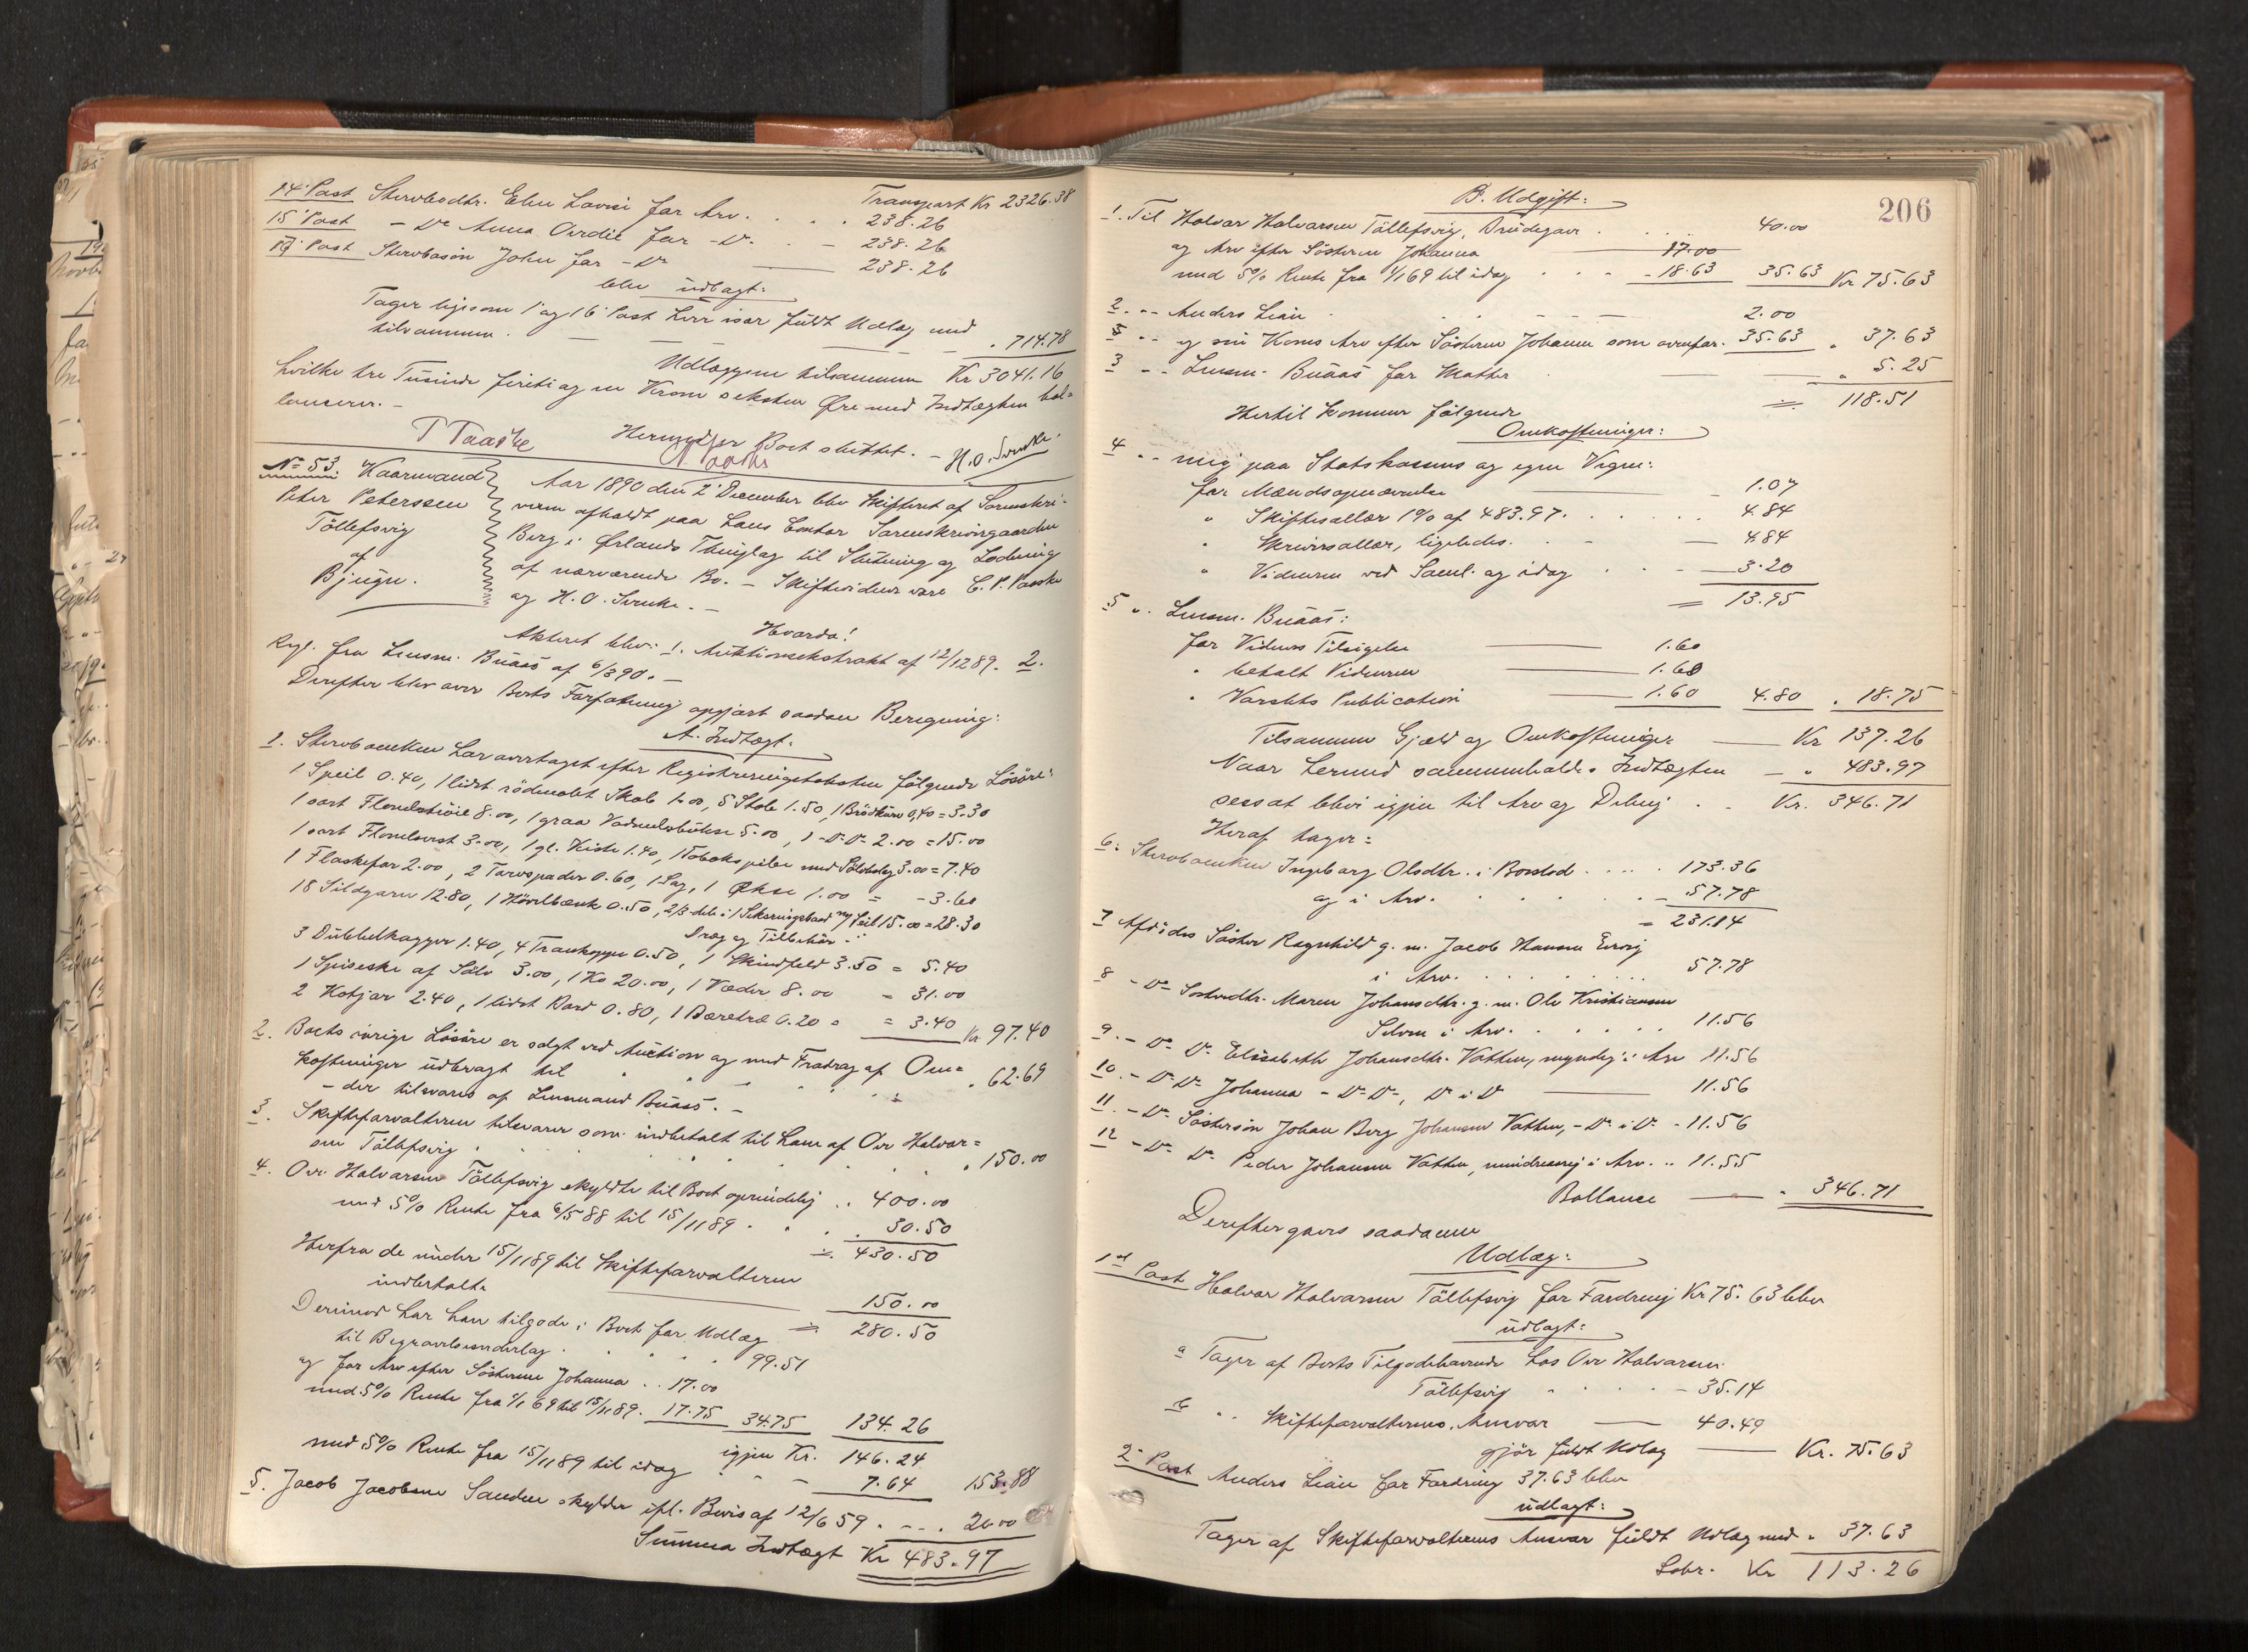 Transport Kr 2326.38
14' Post Stervbodtr. Elen Lovise for Arv. . . . 238.26
15' Post - Do Anna Ovedie for - Do. . - 238.26
17' Post Stervbosøn John for - Do 238.26
blev udlagt:
Tager ligesom 1' og 16' Post hver især fuldt Udlæg med
tilsammen. — — — — „ 714.78
Udlæggene tilsammen Kr 3041.16
hvilke tre Tusinde firetiog en Krone seksten Øre med Indtægten bal=
lancerer. -
Hermed er Boet sluttet. -
P Paaske
H. O. Svenke.
No 53. Kaarmand
Peter Peterssen
Tøllefsvig
af
Bjugn.
Aar 1890 den 2' December blev Skifteret af Sorenskri-
veren afholdt paa hans Contor Sorenskrivergaarden
Berg i Ørlands Thinglag til Slutning og Lodning
af nærværende Bo. - Skiftevidner vare C. P. Paaske
og H. O. Svenke. -
Hvorda!
Akteret blev: 1. Auktionsekstrakt af 12/12 89. 2.
Rgl. fra Lensm. Buaas af 6/3 90. -
Derefter blev over Boets Forfatning opgjort saadan Beregning:
A. Indtægt:
1. Stervboenken har overtaget efter Registreringstaksten følgende Løsøre:
1 Speil 0.40, 1 lidet rødmalet Skab 1.00, 5 Stole 1.50, 1 Brødkurv 0,40 = 3.30
1 sort Flonelstrøie 8.00, 1 graa Vadmelsbukse 5.00, 1 -Do-Do 2.00 = 15.00
1 sort Flonelsvest 3.00, 1 gl. Kiste 1.40, 1 Tobakspibe med Sølvbeslag 3.00 = 7.40
1 Flaskefor 2.00, 2 Torvspader 0.60, 1 Sag, 1 Økse 1.00 = - 3.60
18 Sildgarn 12.80, 1 Høvelbænk 0.50, 2/3 dele i 1 Seksringsbaad m/ Seil 15.00 = 28.30
Dræg og Tilbehør
3 Dubbelkagger 1.40, 4 Trækopper 0.50, 1 Skindfeld 3.50 = 5.40
1 Spiseske af Sølv 3.00, 1 Ko 20.00, 1 Væder 8.00 = 31.00
2 Kobjør 2.40, 1 lidet Bord 0.80, 1 Bæretræ 0.20 = = 3.40 Kr. 97.40
2. Boets øvrige Løsøre er solgt ved Auction og med Fradrag af Om=
kostninger udbragt til „ 62.69
- der tilsvares af Lensmand Buaas. -
3. Skifteforvalteren tilsvarer som indbetalt til ham af Ove Halvor=
sen Tøllefsvig . . . . . . . „ 150.00
4. Ove Halvorsen Tøllefsvig skyldte til Boet oprindelig .. 400.00
med 5% Rente fra 6/5 88 til 15/11 89 . . . 30.50
= 430.50
Herfra de under 15/11 89 til Skifteforvalteren
indbetalte 150.00
= 280.50
Derimod har han tilgode i Boet for Udlæg
til Begravelsesvederlag . . . . 99.51
og for Arv efter Søsteren Johanna .. 17.00
med 5% Rente fra 1/1 69 til 15/11 89. 17.75 34.75 134.26
igjen Kr. 146.24
med 5% Rente fra 15/11 89 til idag - - 7.64 153.88
5. Jacob Jacobsen Sanden skylder ifl. Bevis af 12/6 59 . - - . 20.00
Summa Indtægt Kr 483.97
206
B. Udgift:
1. Til Halvor Halvorsen Tøllefsvig, . . . 40.00
og Arv efter Søsteren Johanna 17.00
med 5% Rente fra 1/1 69 til idag . . . - 18.63 35.63 Kr 75.63
2. - - Anders Lian . . . - - 2.00
og sin Kones Arv efter Søsteren Johanna som ovenfor. 35.63 „ 37.63
3 - - Lensm. Buaas for . „ 5.25
= 118.51
Hertil kommer følgende
Omkostninger:
4 - - mig paa Statskassens og egne Vegne:
for Mændsopnævnelse - 1.07
„ Skiftesallær 1% af 483.97. . . . 4.84
„ Skriversallær, ligeledes. . - — 4.84
„ Vidnerne ved Saml. og idag . . - 3.20
= 13.95
5 „ . Lensm. Buaas:
for Vidners Tilsigelse 1.60
„ betalt Vidnerne 1.60
„ Varslets Publication 1.60 4.80 „ 18.75
Tilsammen Gjæld og Omkostninger Kr 137.26
Naar hermed sammenholdes Indtægten - „ 483.97
sees at blive igjen til Arv og Deling . . Kr. 346.71
Heraf tager:
6: Stervboenken Ingeborg Olsdtr. i Boeslod . . . . 173.36
og i Arv. . . . . . . - 57.78
= 231.14
7 Afdødes Søster Ragnhild g. m. Jacob Hansen
i Arv. . . . . . . . . 57.78
8 - Do Søsterdtr. Maren Johansdtr. g. m. Ole Kristiansen
Selven i Arv. . . . . . 11.56
9. - Do Do Elisabeth Johansdtr. Vatten, myndig i Arv 11.56
10. - Do Do Johanna - Do Do -, Do i Do 11.56
11. - Do Søstersøn Johan Berg Johansen Vatten, - Do i Do - 11.56
12 - Do Do Peder Johansen Vatten, mindreaarig i Arv. .. 11.55
Ballance „ 346.71
Derefter gjøres saadanne
Udlæg:
1st Post Halvor Halvorsen Tøllefsvig for Fordring Kr 75.63 blev
udlagt:
a Tager af Boets Tilgodehavende hos Ove Halvorsen
Tøllefsvig . . . - 35.14
b „ . Skifteforvalterens Ansvar 40.49
gjør fuldt Udlæg Kr. 75.63
2' Post Anders Lian for Fordring 37.63 blev
udlagt:
Tager af Skifteforvalterens Ansvar fuldt Udlæg med „ 37.63
Labr. Kr 113.26